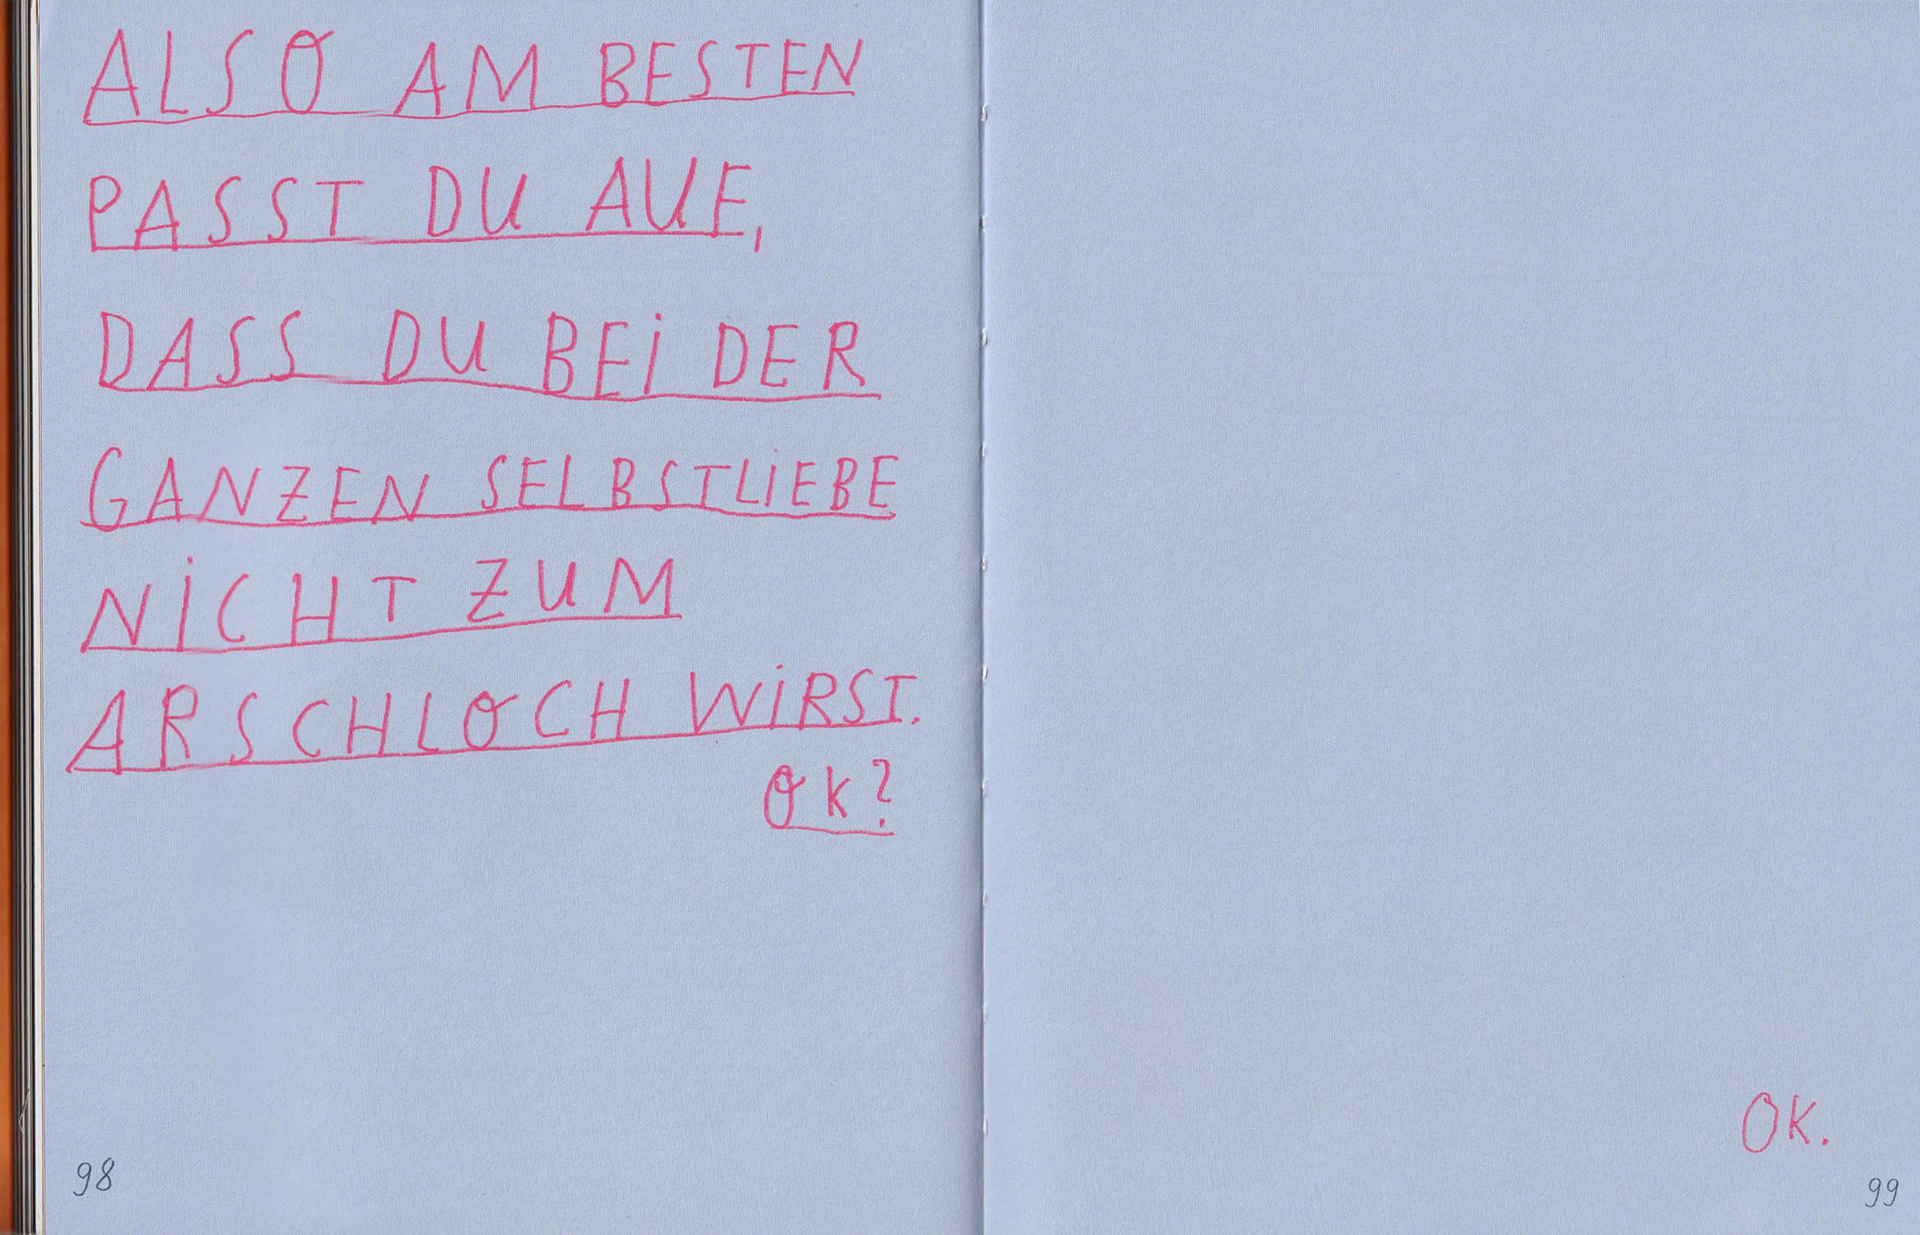 ALSO AM BESTEN
PASST DU AUF,
DASS DU BEi DER
GANZEN SELBSTLiEBE
NiCHT ZUM
ARSCHLOCH WiRST.
OK?
98
OK.
99